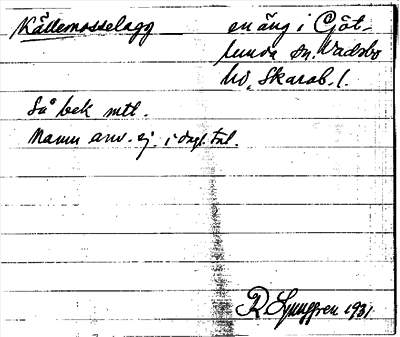 Källemosselagg en äng i Göt-
lunda sn. Vadsbo
hd, Skarab. l.
Så bek mtl.
Namn anv. ej. i dagl. tal.
R. Ljunggren 1931